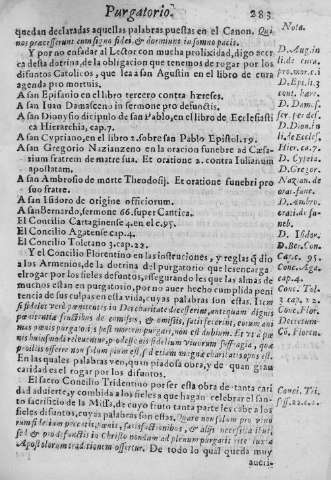 Purgatorio. 283
quedan declaradas aquellas palabras puestas en el Canon. Qui
nos præcesserunt cum signo fidei, & dormiunt in somno pacis.
Y por no enfadar al Lector con mucha prolixidad, digo acer
ca desta dotrina, de la obligacion que tenemos de rogar por los
difuntos Catolicos, que lea a san Agustin en el libro de cura
agenda pro mortuis.
A san Epifanio en el libro tercero contra hæreses.
A san Iuan Damasceno in sermone pro defunctis.
A san Dionysio dicipulo de san Pablo, en el libro de Ecclesiasti
ca Hierarchia, cap.7.
A san Cypriano, en el libro 2. sobre san Pablo Epistol. 19.
A san Gregorio Nazianzeno en la oracion funebre ad Cæsa-
rium fratrem de matre sua. Et oratione 2. contra Iulianum
apostatam.
A san Ambrosio de morte Theodosij. Et oratione funebri pro
suo fratre.
A san Isidoro de origine officiorum.
A san Bernardo, sermone 66. super Cantica.
El Concilio Cartaginense 4. en el c.95.
El Concilio Agatense cap.4.
El Concilio Toletano 3. cap.22.
Y el Concilio Florentino en las instruciones, y reglas q̃ dio
a los Armenios, de la dotrina del purgatorio que les encarga
el rogar por los fieles defuntos, assegurando les que las almas de
muchos estan en purgatorio, por no auer hecho cumplida peni
tencia de sus culpas en esta vida, cuyas palabras son estas. Item
si fideles verè pœnitentes in Dei charitate decesserint, antequam dignis
En las quales palabras ven, quan piadosa obra, y de quan gran
caridad es el rogar por los difuntos.
El sacro Concilio Tridentino por ser esta obra de tanta cari
dad aduierte, y combida a los fieles a que hagan celebrar el san-
to sacrificio de la Missa, de cuyo fruto tanta parte les cabe a los
fieles difuntos, cuyas palabras son estas. Quare non solum pro vivo
sed & pro defunctis in Christo nondum ad plenum purgatis rite iuxta
Apostolorum traditionem offertur. De todo lo qual queda muy
Nota.
D. Aug. in
li. de cura
pro mor. c. 1
D. Epi. li. 3
cont. hær.
D. Dam. s.
ser. por def.
D. Dion. in
li. de Eccles.
Hier. ca. 7.
D. Cypria.
D. Gregor.
Nazian. de
orat. fune.
D. Ambro.
orati. de fu
neb.
D. Isidor.
D. Ber. Con.
Cap. 95.
Conc. Aga.
cap. 4.
Conc. Tol.
3 cap. 22.
Conc. Flor.
Decretum
Co. Floren.
Conci. Tri.